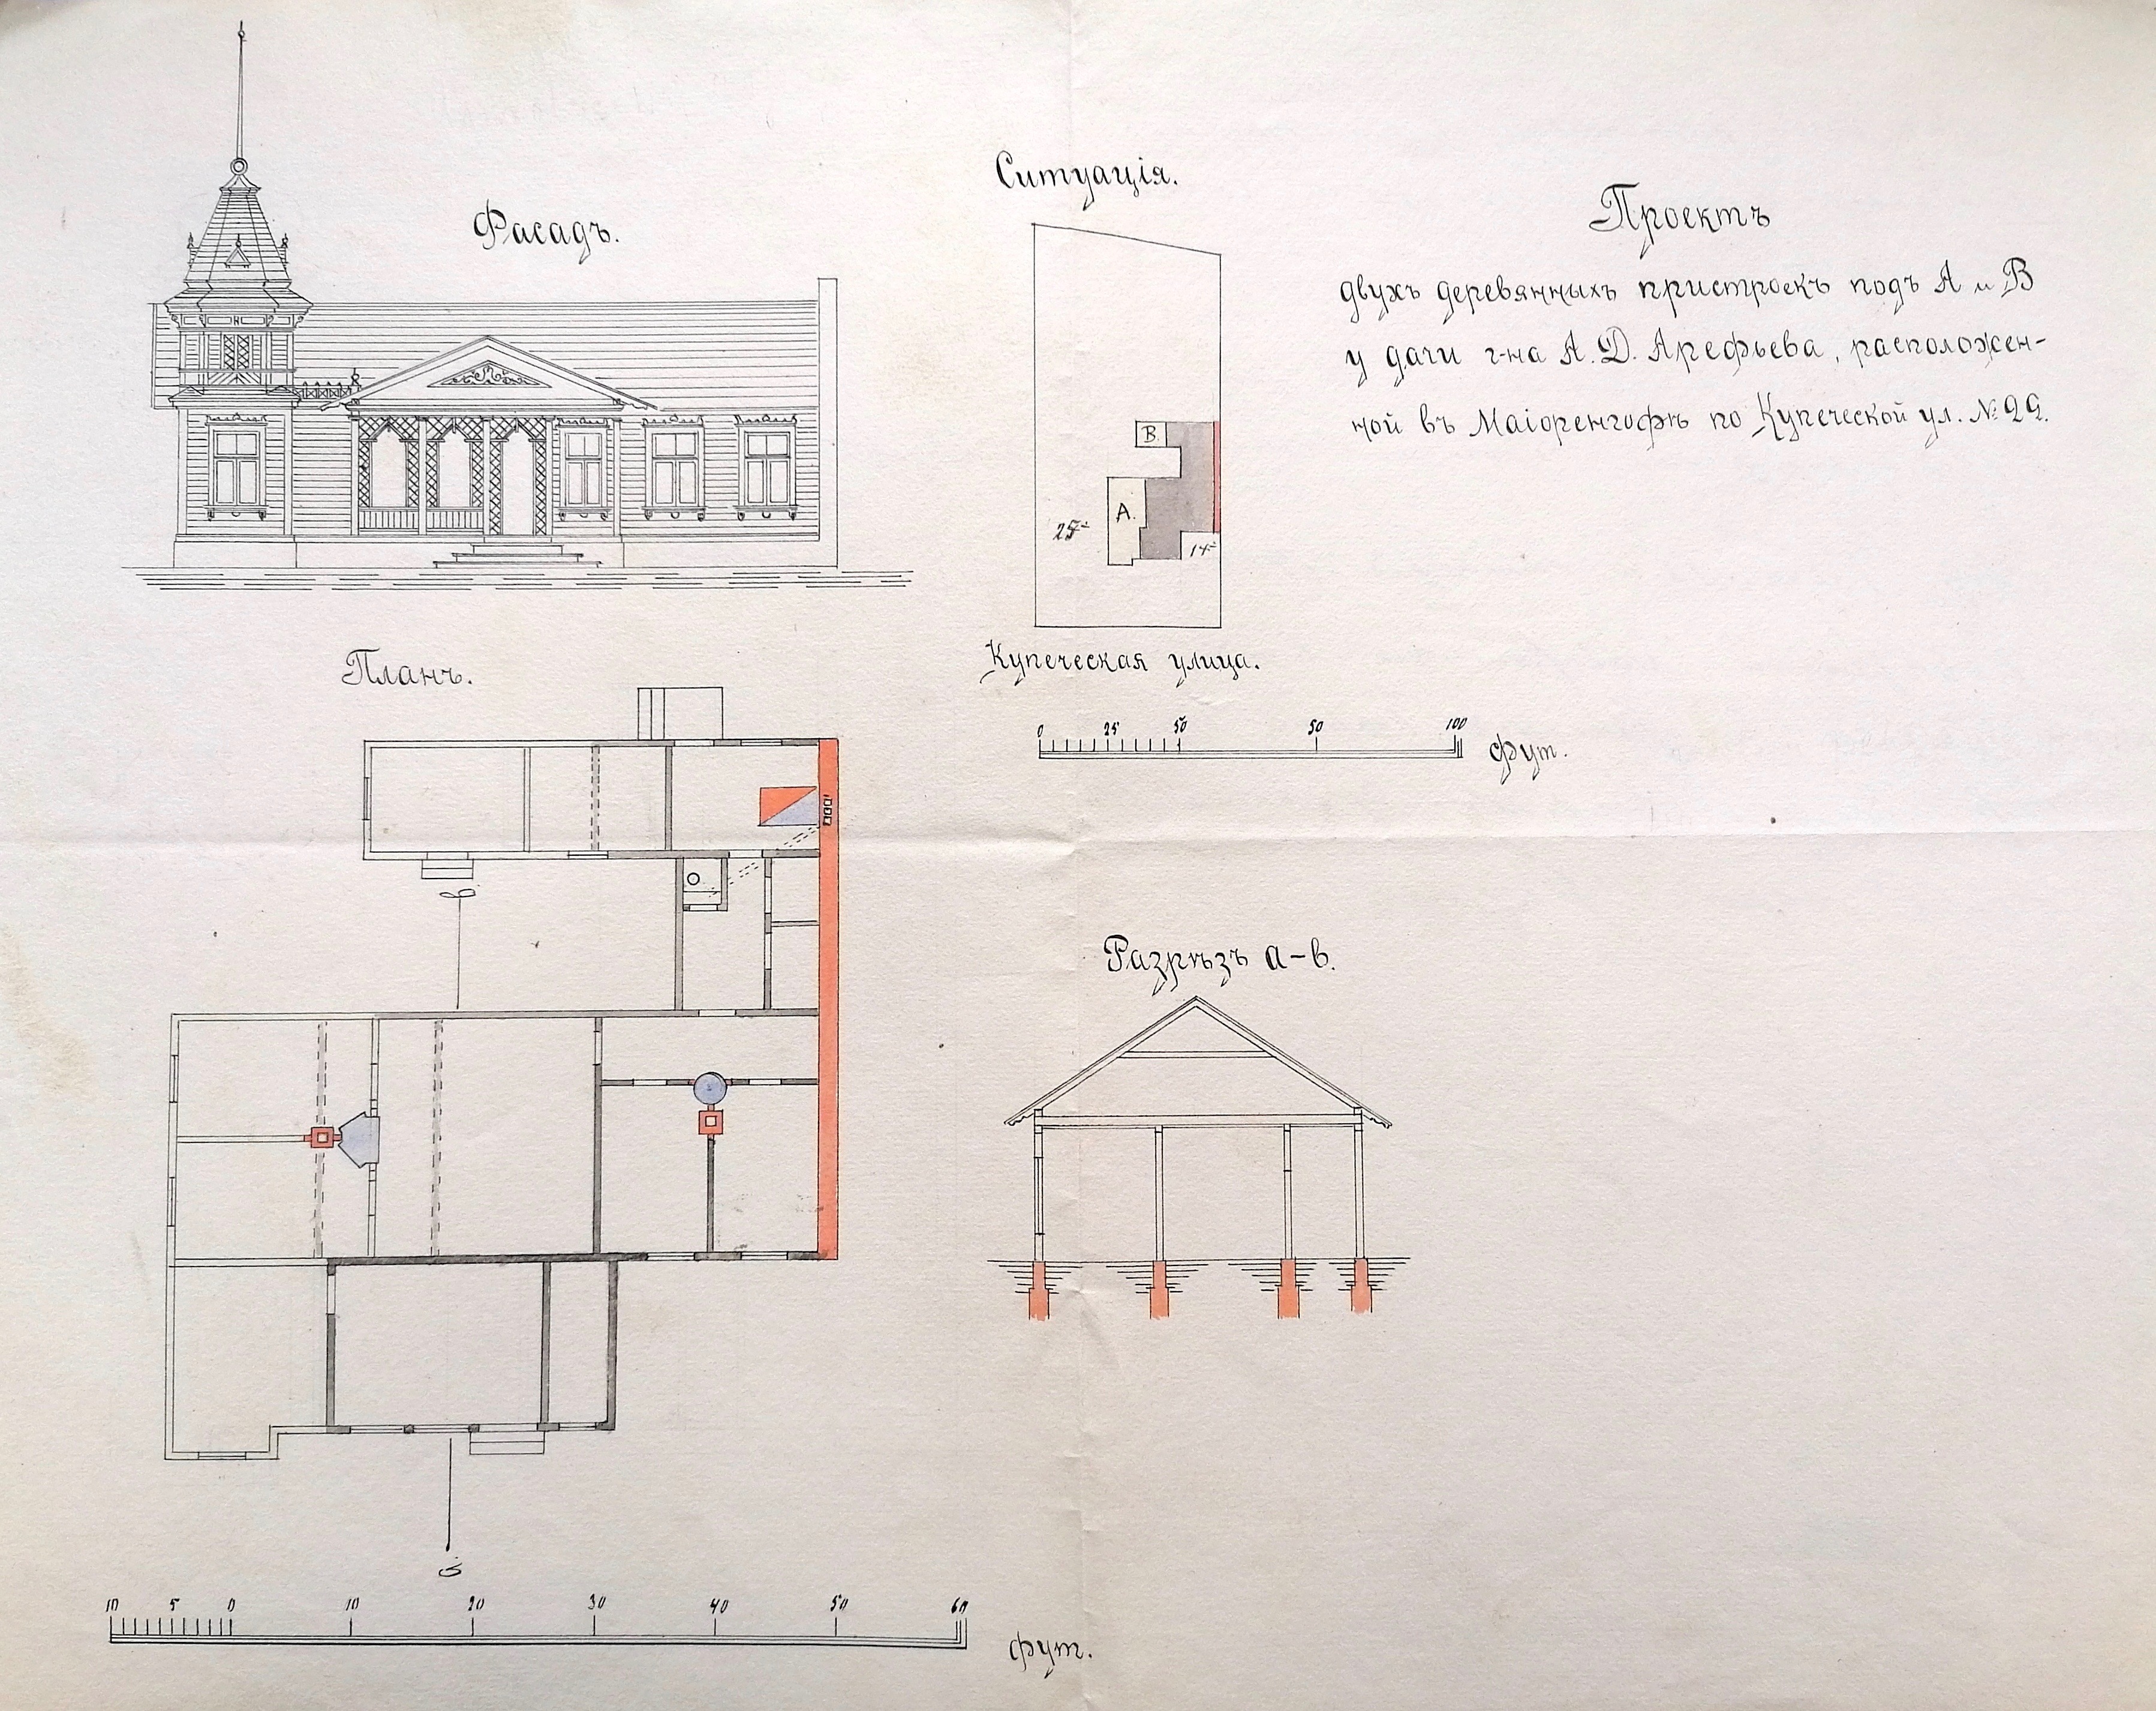 Фасадъ.
Ситуація.
Проектъ
двухъ деревянныхъ пристроекъ подъ А и В
у дачи г-на А. Д. Арефьева, расположен-
ной въ Маіоренгофѣ по Купеческой ул. №
В.
А.
14
Купеческая улица.
0 25 50 50 100
фут.
Планъ.
Разрѣзъ а-в.
10 5 0 10 20 30 40 50 60
фут.